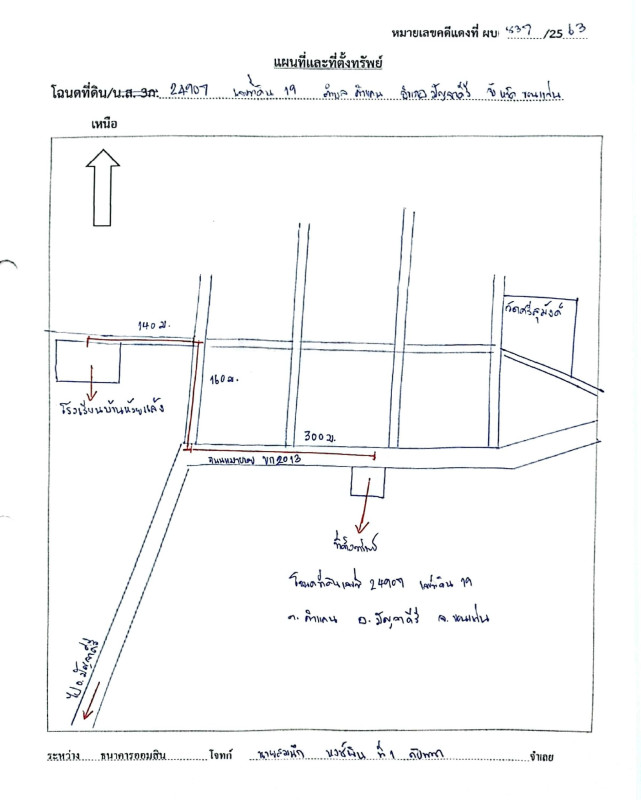 หมายเลขคดีแดงที่ ผบ 837 /25 63
แผนที่และที่ตั้งทรัพย์
โฉนดที่ดิน/น.ส. 3ก. 24907 เลขที่ดิน 19 ตำบล คำแคน อำเภอ มัญจาคีรี จังหวัด ขอนแก่น
เหนือ
วัดศรีสุมังค์
140 ม.
160 ม.
โรงเรียนบ้านห้วยแล้ง
300 ม.
ถนน ขก 2013
ที่ตั้งทรัพย์
โฉนดที่ดินเลขที่ 24907 เลขที่ดิน 19
ต. คำแคน อ. มัญจาคีรี จ. ขอนแก่น
ไป อ. มัญจาคีรี
ระหว่าง ธนาคารออมสิน โจทก์ นายสมนึก ที่ 1 จำเลย